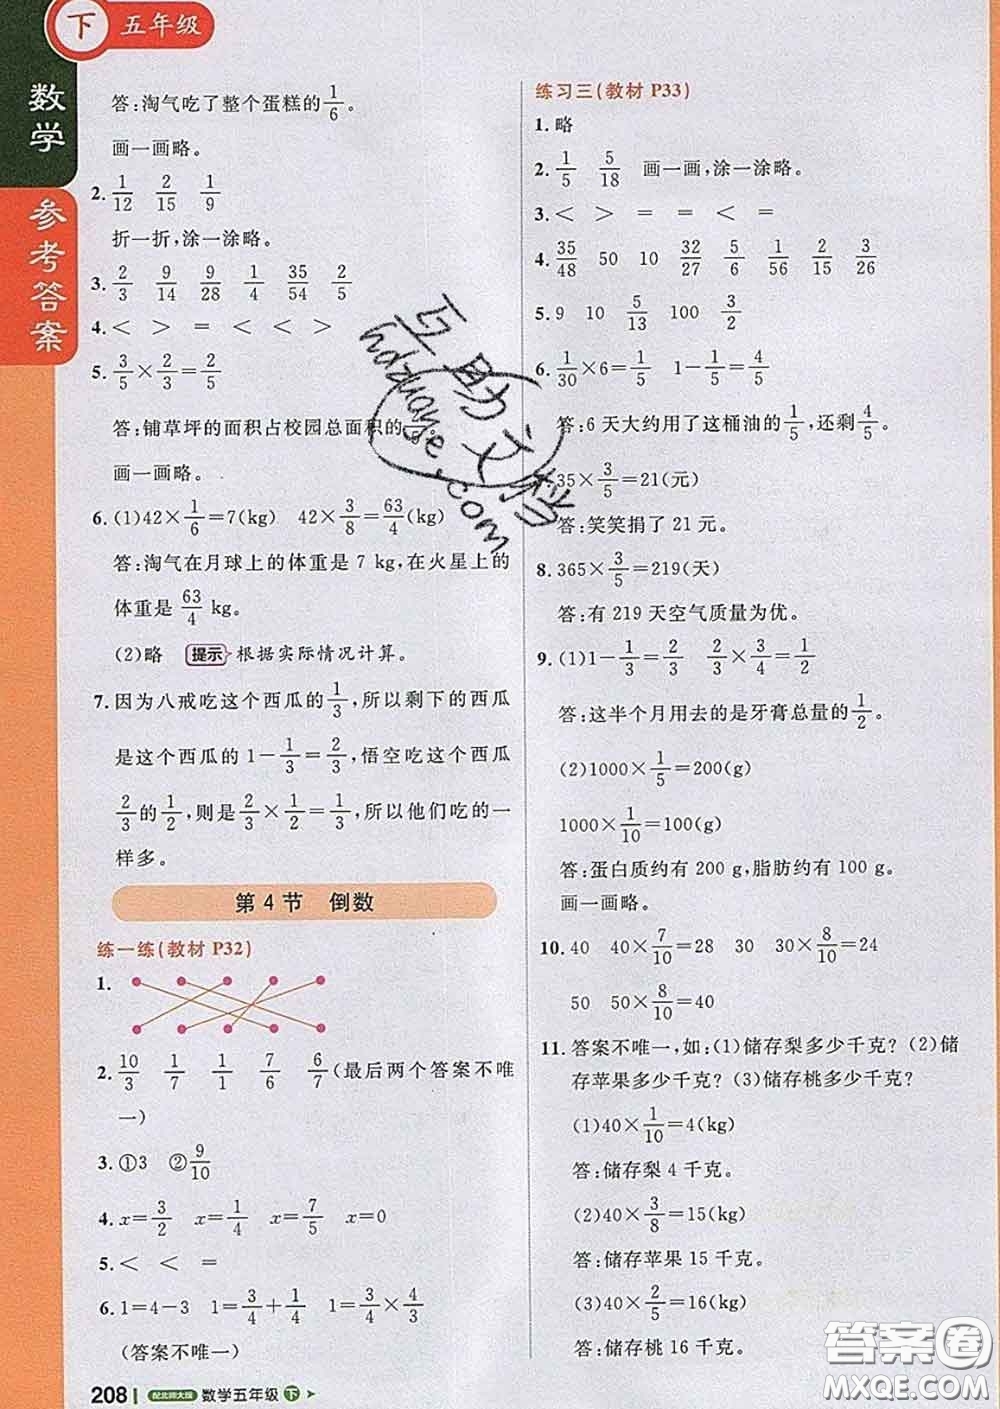 下 五年级
数学
参考答案
答:淘气吃了整个蛋糕的1/6。
画一画略。
2. 1/12 2/15 1/9
折一折,涂一涂略。
3. 2/3 9/14 9/28 1/4 35/54 2/5
4. < > = < < >
5. 3/5×2/3=2/5
答:铺草坪的面积占校园总面积的
画一画略。
6. (1)42×1/6=7(kg) 42×3/8=63/4(kg)
答:淘气在月球上的体重是 7 kg,在火星上的
体重是 63/4 kg。
(2)略 提示 根据实际情况计算。
7. 因为八戒吃这个西瓜的1/3,所以剩下的西瓜
是这个西瓜的 1-1/3=2/3,悟空吃这个西瓜
2/3的1/2,则是2/3×1/2=1/3,所以他们吃的一
样多。
第 4 节 倒数
练一练(教材 P32)
1.
2. 10/3 1/7 1/1 7/6 6/7(最后两个答案不唯
一)
3. ①3 ②9/10
4. x=3/2 x=1/4 x=7/5 x=0
5. < < =
6. 1=4-3 1=3/4+1/4 1=3/4×4/3
(答案不唯一)
208 配北师大版 数学五年级 下
练习三(教材 P33)
1. 略
2. 1/5 5/18 画一画,涂一涂略。
3. < > = = < =
4. 35/48 50 10 32/27 5/6 1/56 2/15 3/26
5. 9 10 5/13 100 3/2
6. 1/30×6=1/5 1-1/5=4/5
答:6 天大约用了这桶油的1/5,还剩4/5。
35×3/5=21(元)
答:笑笑捐了 21 元。
8. 365×3/5=219(天)
答:有 219 天空气质量为优。
9. (1)1-1/3=2/3 2/3×3/4=1/2
答:这半个月用去的是牙膏总量的1/2。
(2)1000×1/5=200(g)
1000×1/10=100(g)
答:蛋白质约有 200 g,脂肪约有 100 g。
画一画略。
10. 40 40×7/10=28 30 30×8/10=24
50 50×8/10=40
11. 答案不唯一,如:(1)储存梨多少千克? (2)储
存苹果多少千克? (3)储存桃多少千克?
(1)40×1/10=4(kg)
答:储存梨 4 千克。
(2)40×3/8=15(kg)
答:储存苹果 15 千克。
(3)40×2/5=16(kg)
答:储存桃 16 千克。
互助文档
hdzuoye.com
答案圈
MXQE.COM